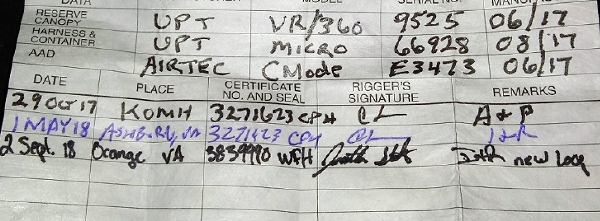 DATA SERIAL NO.
RESERVE CANOPY UPT VR/360 9525 06/17
HARNESS & CONTAINER UPT MICRO 66928 08/17
AAD AIRTEC CMode E3473 06/17
DATE PLACE CERTIFICATE NO. AND SEAL RIGGER'S SIGNATURE REMARKS
29 OCT 17 KOMH 3271623 CPH A+P
1 MAY 18 VA 3271623 CPH I+R
2 Sept. 18 Orange VA 3839990 WFH I+R new Loop